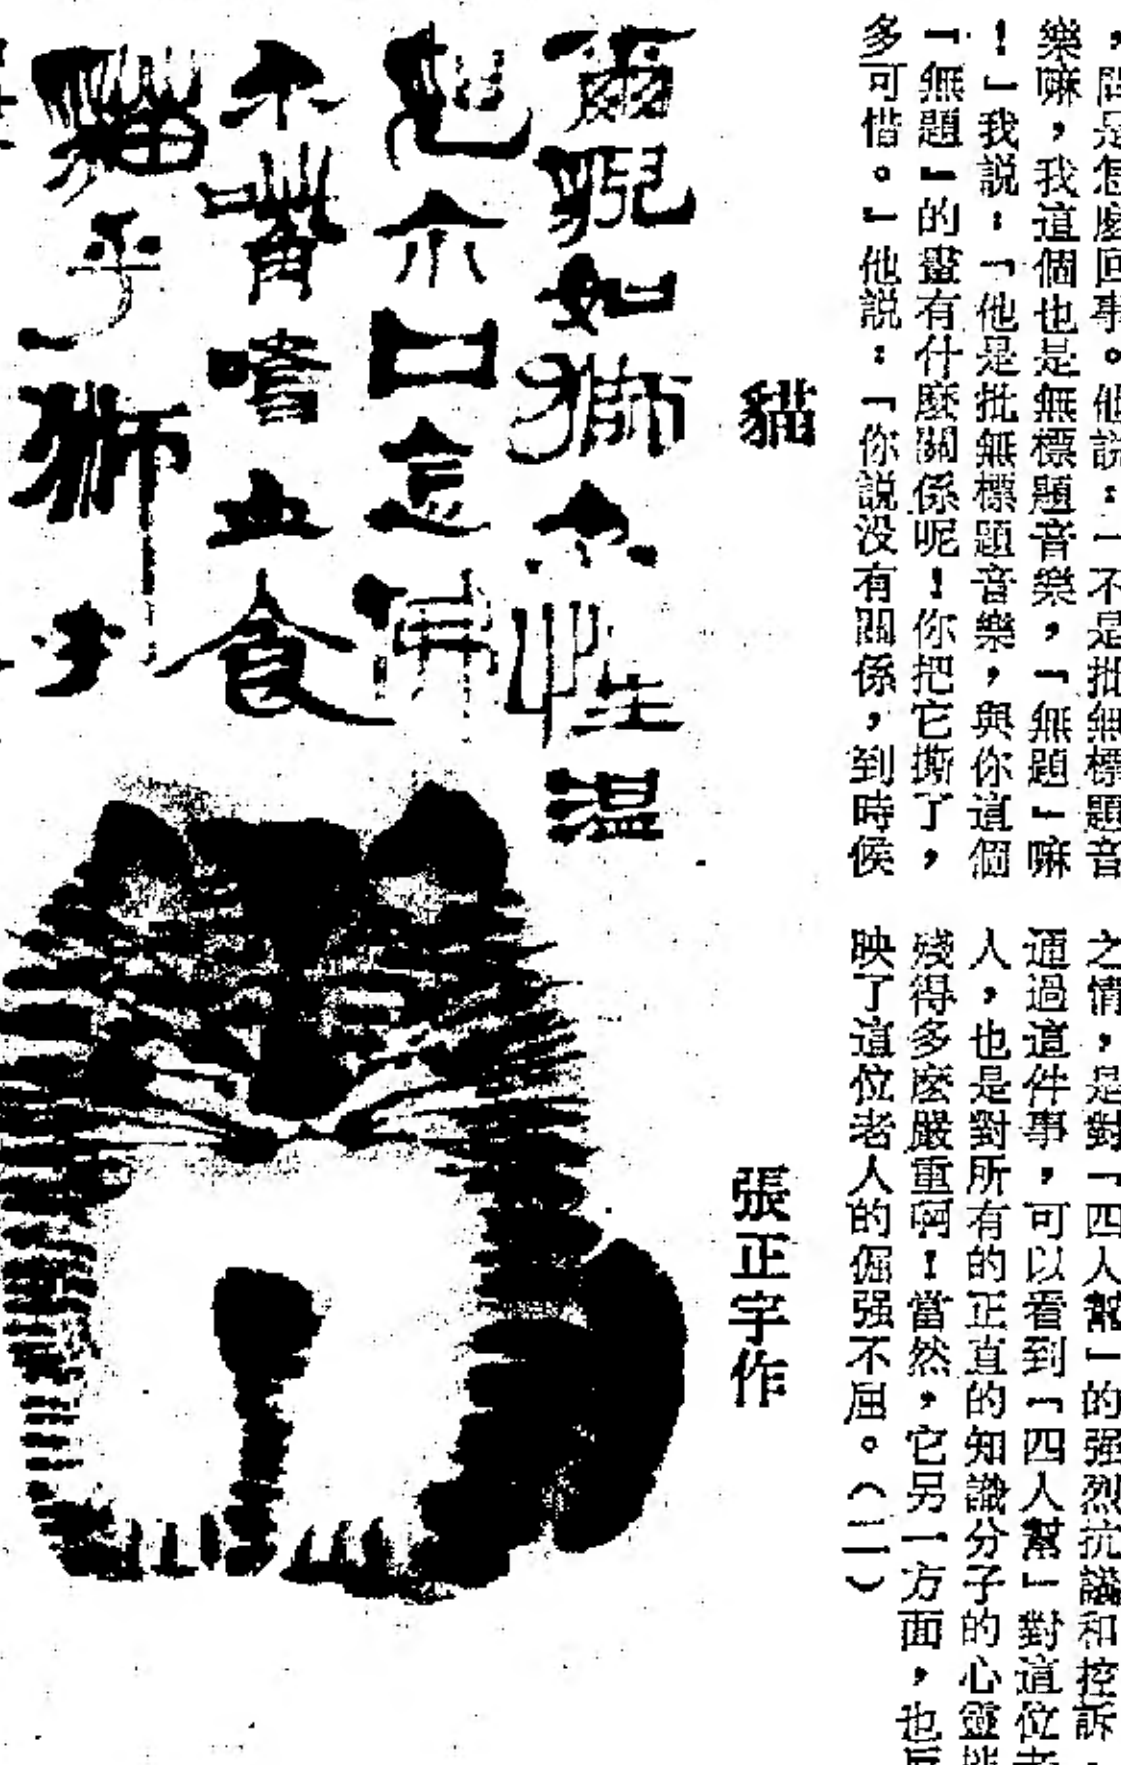 ，問是怎麽回事。他説：「不是批無標題音
樂嘛，我這個也是無標題音樂，「無題」嘛
！」我説：「他是批無標題音樂，與你這個
「無題』的畫有什麽關係呢！你把它撕了，
多可惜。』他説：「你説没有關係，到時候
之情，是對「四人幫」的强烈抗議和控訴。
通過這件事，可以看到「四人幫」對這位老
人，也是對所有的正直的知識分子的心靈摧
殘得多麽嚴重啊！當然，它另一方面，也反
映了這位老人的倔强不屈。（二）
貓
張正宇作
爾貌如獅 性温
也 口念佛
不嘴嗜血食
貓乎獅乎